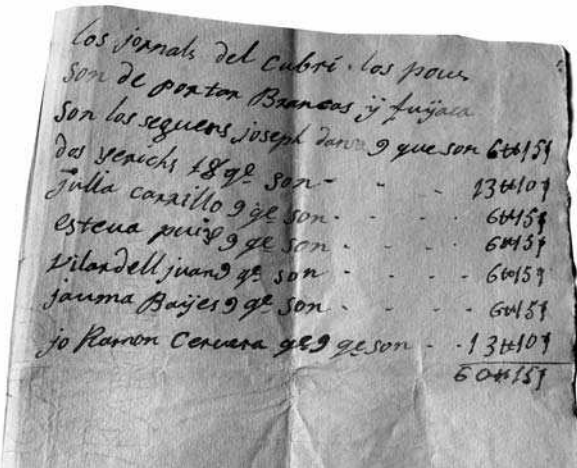 los jornals del Cubrí los pous
son de portar Brancas ÿ fuÿaca
son los seguens joseph dan 9 que son 6tt15ſ
dos yerichs 18 qe son - - - 13tt10ſ
Julia carrillo 9 qe son - - - 6tt15ſ
esteva puig 9 qe son - - - 6tt15ſ
vilardell juan 9 qe son - - - - 6tt15ſ
jauma Baÿes 9 qe son - - - - 6tt15ſ
jo Ramon Cervera qe 9 qe son - - 13tt10ſ
60tt15ſ